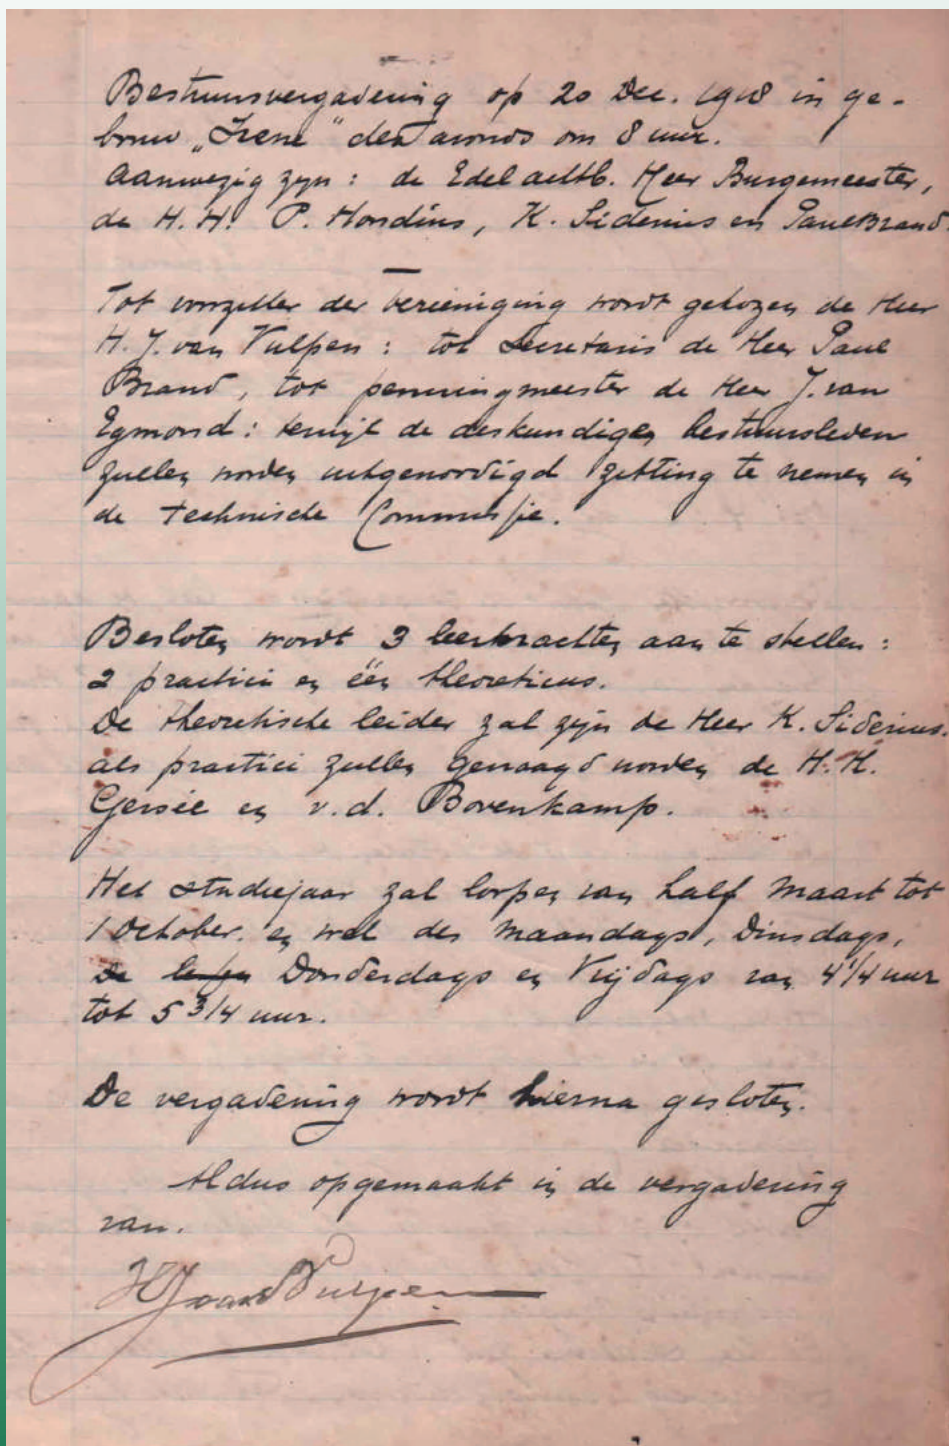 Bestuursvergadering op 20 Dec. 1918 in ge-
bouw „Irene" des avonds om 8 uur.
Aanwezig zijn: de Edelachtb. Heer Burgemeester,
de H.H. P. Hondius, K. Siderius en Paul Brand.
Tot voorzitter der vereeniging wordt gekozen de Heer
H. J. van Vulpen: tot Secretaris de Heer Paul
Brand, tot penningmeester de Heer J. van
Egmond: terwijl de deskundige bestuursleden
zullen worden uitgenoodigd zitting te nemen in
de technische Commissie.
Besloten wordt 3 leerkrachten aan te stellen:
2 practici en één theoreticus.
De theoretische leider zal zijn de Heer K. Siderius.
als practici zullen gevraagd worden de H.H.
Gersée en v.d. Bovenkamp.
Het studiejaar zal loopen van half Maart tot
1 October. en wel des Maandags, Dinsdags,
De lessen Donderdags en Vrijdags van 4 1/4 uur
tot 5 3/4 uur.
De vergadering wordt hierna gesloten.
Aldus opgemaakt in de vergadering
van.
HJvanVulpen